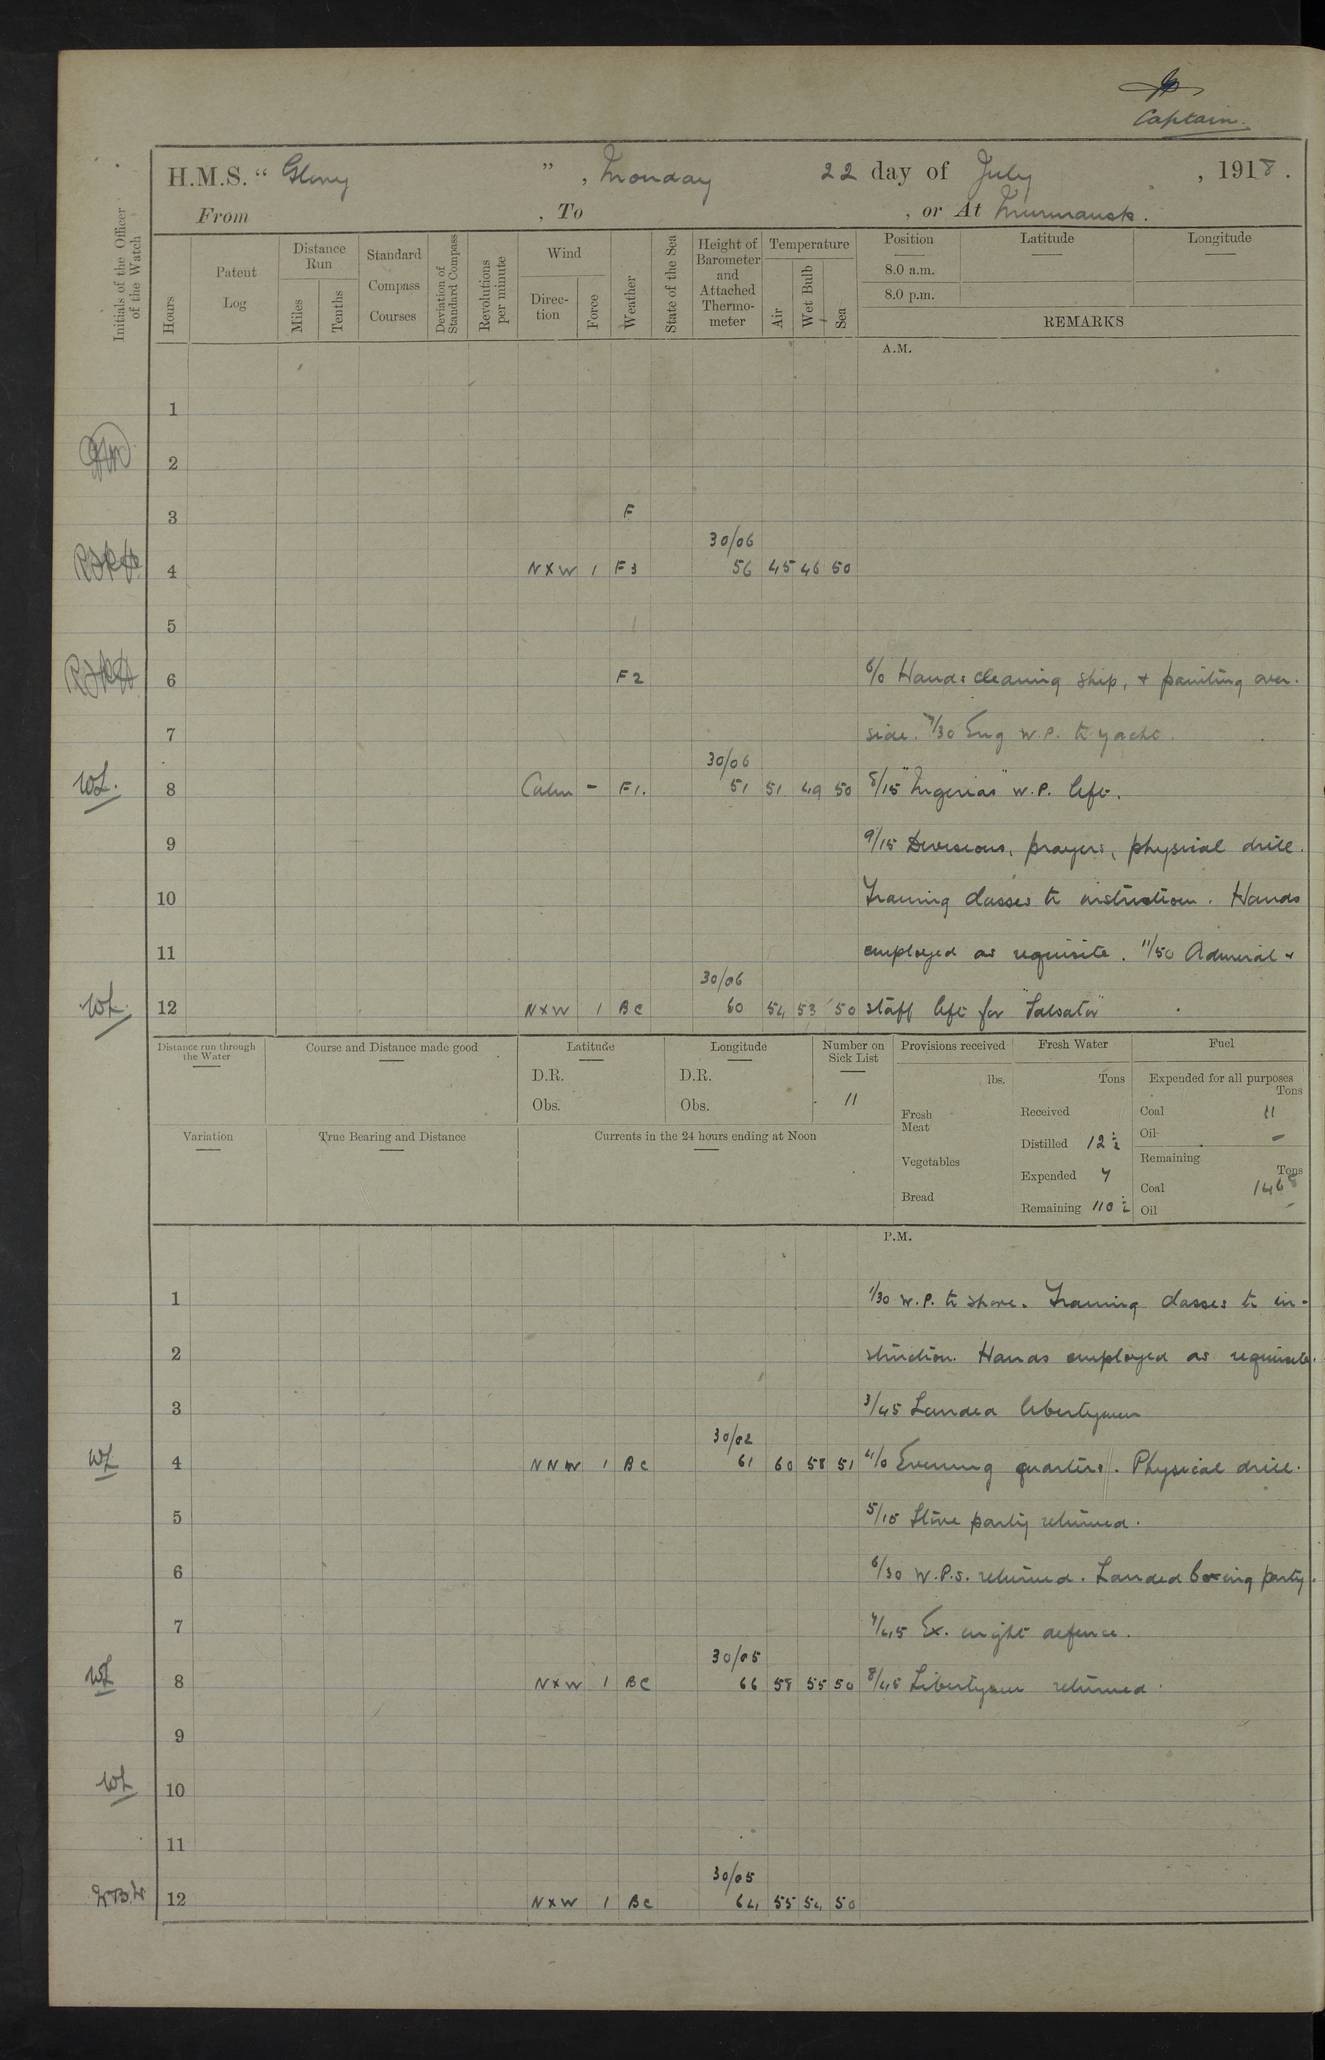 Captain.
H.M.S. “ Glory ” , Monday 22 day of July , 1918 .
From , To , or At Murmansk .
Initials of the Officer of the Watch
Hours
Patent Log
Distance Run
Miles
Tenths
Standard Compass Courses
Deviation of Standard Compass
Revolutions per minute
Wind
Direc-tion
Force
Weather
State of the Sea
Height of Barometer and Attached Thermo-meter
Temperature
Air
Wet Bulb
Sea
Position Latitude Longitude
8.0 a.m.
8.0 p.m.
REMARKS
A.M.
1
2
3 F
30/06
4 N x W 1 F3 56 45 46 50
5
6 F2 6/0 Hands cleaning ship, + painting over-
7 side. 7/30 Eng W.P. to yacht.
30/06
WL. 8 Calm - F1. 51 51 49 50 8/15 "Nigerias" W.P. left.
9 9/15 Divisions, prayers, physical drill.
10 Training classes to instruction. Hands
11 employed as requisite. 11/50 Admiral +
30/06
WL. 12 N x W 1 BC 60 54 53 50 staff left for "Salvator"
Distance run through the Water
Course and Distance made good
Latitude
D.R.
Obs.
Longitude
D.R.
Obs.
Number on Sick List
11
Variation
True Bearing and Distance
Currents in the 24 hours ending at Noon
Provisions received
lbs.
Fresh Meat
Vegetables
Bread
Fresh Water
Tons
Received
Distilled 12 ½
Expended 7
Remaining 110 ½
Fuel
Expended for all purposes
Tons
Coal 11
Oil -
Remaining
Tons
Coal 1468
Oil -
P.M.
1 1/30 W.P. to shore. Training classes to in-
2 struction. Hands employed as requisite.
3 3/45 Landed libertymen
30/02
WL 4 NNW 1 BC 61 60 58 51 4/0 Evening quarters. Physical drill.
5 5/15 Store party returned.
6 6/30 W.P.s. returned. Landed boxing party.
7 7/45 Ex. night defence.
30/05
WL 8 N x W 1 BC 66 58 55 50 8/45 Libertymen returned.
9
WL 10
11
30/05
12 N x W 1 BC 64 55 54 50